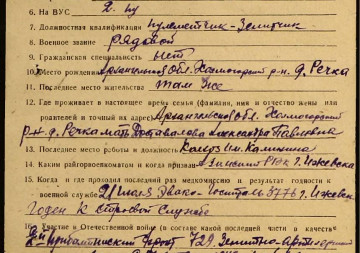 6. На ВУС
7. Должностная квалификация пулеметчик-зенитчик
8. Военное звание рядовой
9. Гражданская специальность нет
10. Место рождения Архангельск. Обл. Холмогорский р-н д. Речка
11. Последнее место жительства там же
12. Где проживает в настоящее время семья (фамилия, имя и отчество жены или
родителей и точный их адрес) Архангельск. обл. Холмогорский
р-н д. Речка мать Александра Павловна
13. Последнее место работы и должность Колхоз им. Калинина
14. Каким райгорвоенкоматом и когда призван РВК г. Ижевска
15. Когда и где проходил раз медкомиссию и результат годности к
военной службе 21 июля Эвако-Госпиталь 3776 г. Ижевск
Годен к строевой службе
Участие в Отечественной войне (в составе какой последней части в качестве
2й прибалтийский фронт 729 Зенитно-Артил